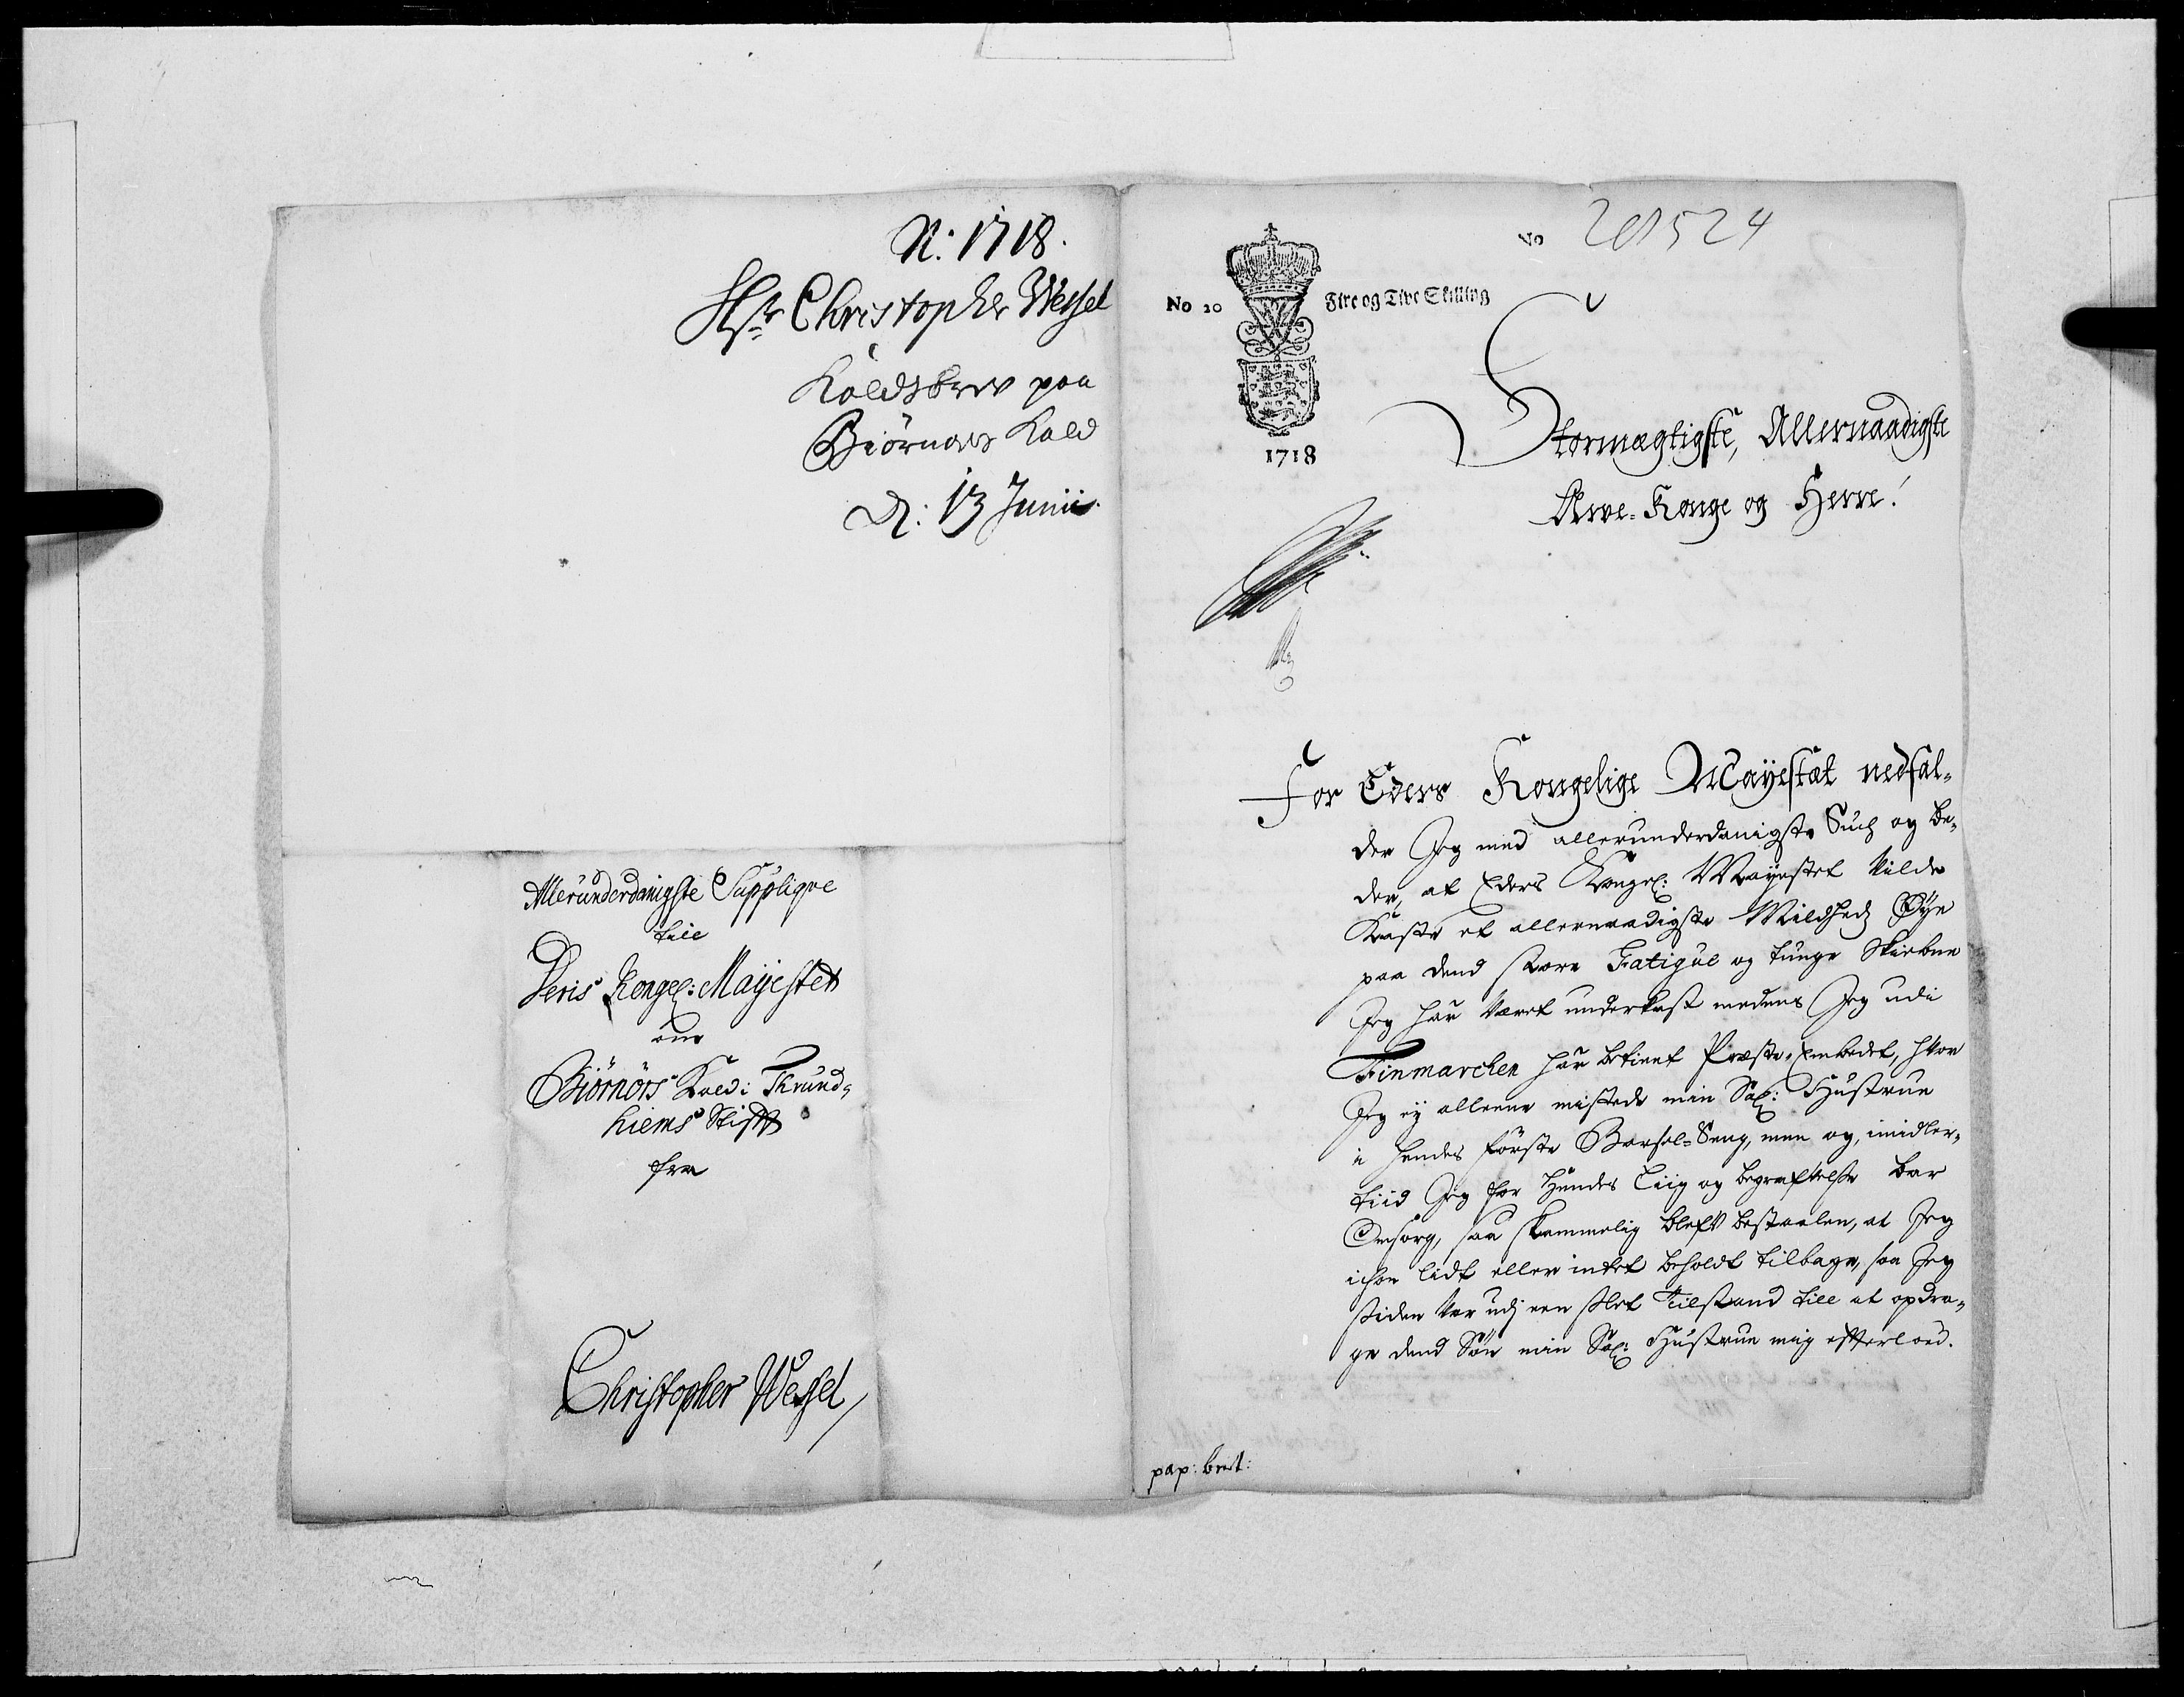 N: 1718.
Hr Christopher Wessel
Kaldsbrev paa
Biørnøers Kald
D: 13 Junii.
Alleründerdanigste Supplique
till
Deris Kongel: Mayestet
om
Biörnörs Kald i Thrund-
hiems Stifft
fra
Christopher Wessel
No 20
Fire og Tive Skilling
1718
No 201524
Stormægtigste, Allernaadigste
Arve-Konge og Herre!
For Eders Kongelige Mayestæt nedfal-
der Jeg med allerunderdanigste Such og be-
der, at Eders Kongel: Mayestet vilde
Kaste et allernaadigste Mildheds Øye
paa dend store Fatigue og tunge Skiebne
Jeg har været underkast medens Jeg udi
Finmarchen har betient Præste-Embedet, hvor
Jeg ey alleene mistede min Sal: Hustrue
i hendes förste Barsel-Seng, men og, imidler-
tiid Jeg for hendes Liig og begraffvelse bar
Omsorg, saa skammelig bleff bestaalen, at Jeg
ichon lidt eller intet beholdt tilbage, saa Jeg
siden var udj een slet Tilstand till at opdra-
ge dend Sön min Sal: Hustrue mig efterlod.
pap: bret: